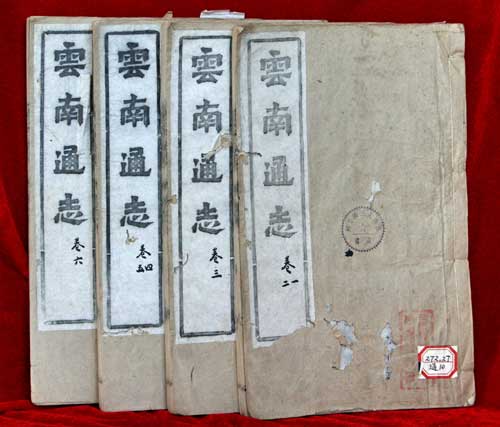 雲南通志
卷六
雲南通志
卷四五
雲南通志
卷三
雲南通志
卷一二
272.27